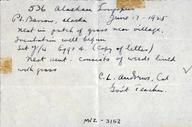 536 Alaskan Longspur
Pt. Barrow, Alaska June 17-1925
Nest in patch of grass near village,
Incubation well begun
Set 9/4 Eggs 4. (Copy of letter)
Nest sent. consists of weeds lined
with grass
C. L. Andrews, Col
Govt Teacher.
MVZ-3152